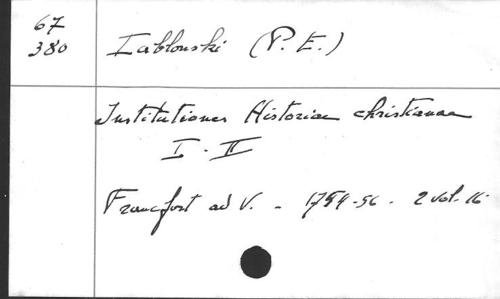 67
380
Iablonski (P. E.)
Institutiones Historiae christianae
I - II
Francfort ad V. - 1754-56 - 2 vol. 16